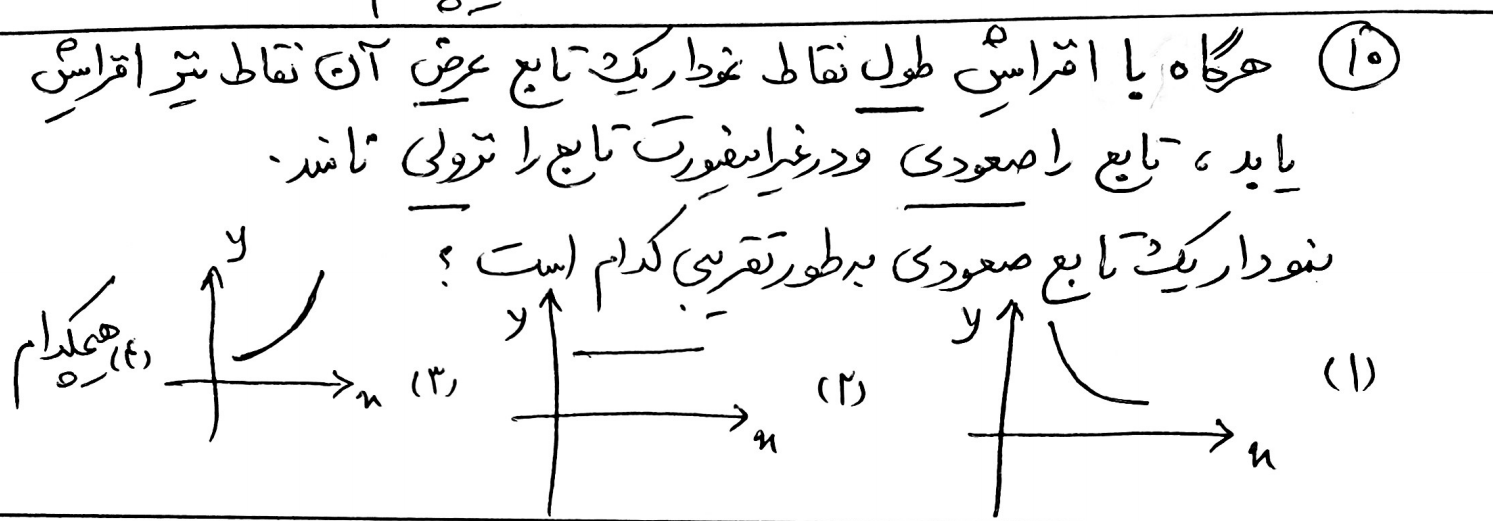 ۱۰ هرگاه با افزایش طول نقاط نمودار یک تابع عرض آن نقاط نیز افزایش
یابد، تابع را صعودی و در غیر اینصورت تابع را نزولی نامند.
نمودار یک تابع صعودی به طور تقریبی کدام است؟
(۱) y x (۲) y x (۳) y x (۴) هیچکدام